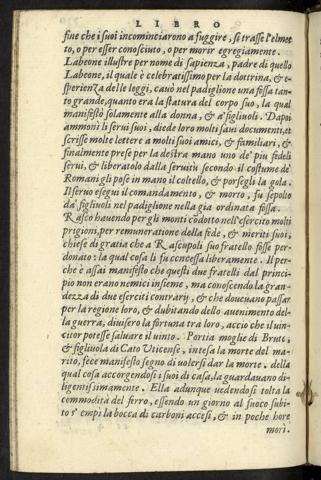 LIBRO
fine che i suoi incominciarono a fuggire, si trasse l'elmet
to, o per esser conosciuto, o per morir egregiamente.
Labeone illustre per nome di sapienza, padre di quello
Labeone, il quale è celebratissimo per la dottrina, & e-
sperienza delle leggi, cauò nel padiglione una fossa tan-
to grande, quanto era la statura del corpo suo, la qual
manifestò solamente alla donna, & a' figliuoli. Dapoi
ammonì li serui suoi, diede loro molti saui documenti, et
scrisse molte lettere a molti suoi amici, & familiari, &
finalmente prese per la destra mano uno de' piu fedeli
serui, & liberatolo dalla seruitù secondo il costume de'
Romani gli pose in mano il coltello, & porsegli la gola.
Il seruo esegui il comandamento, & morto, fu sepolto
da' figliuoli nel padiglione nella già ordinata fossa.
Rasco hauendo per gli monti cōdotto nell'esercito molti
prigioni, per remuneratione della fede, & meriti suoi,
chiese di gratia che a Rascupoli suo fratello fosse per-
donato: la qual cosa li fu concessa liberamente. Il per-
che è assai manifesto che questi due fratelli dal princi-
pio non erano nemici insieme, ma conoscendo la gran-
dezza di due eserciti contrarij, & che doueuano passar
per la regione loro, & dubitando dello auenimento del-
la guerra, diuisero la fortuna tra loro, accio che il uin-
citor potesse saluare il uinto. Portia moglie di Bruto,
& figliuola di Cato Vticense, intesa la morte del ma-
rito, fece manifesto segno di uolersi dar la morte. della
qual cosa accorgendosi i suoi di casa, la guardauano di-
ligentissimamente. Ella adunque uedendosi tolta la
commodità del ferro, essendo un giorno al fuoco subi-
to s' empì la bocca di carboni accesi, & in poche hore
morì.